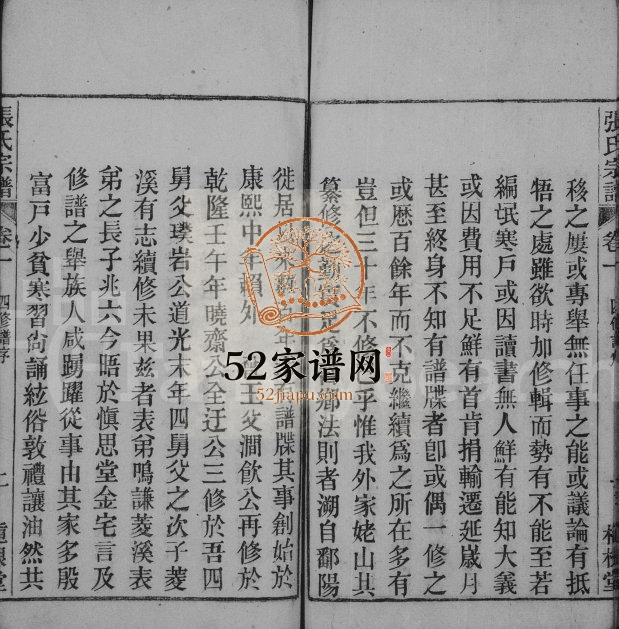 張氏宗譜
卷一
四修譜序
移之屢或專舉無任事之能或議論有抵
牾之處雖欲時加修輯而勢有不能至若
編氓寒戶或因讀書無人鮮有能知大義
或因費用不足鮮有首肯捐輸遷延歲月
甚至終身不知有譜牒者卽或偶一修之
或歷百餘年而不克繼續爲之所在多有
豈但三十年不修 乎惟我外家姥山其
纂修之勤 足爲 鄉法則者溯自鄱陽
徙居 來數百年 譜牒其事創始於
康熙中年賴外 王父澗飲公再修於
乾隆壬午年曉齋公仝迂公三修於吾四
舅父璞岩公道光末年四舅父之次子菱
溪有志續修未果茲者表弟鳴謙菱溪表
弟之長子兆六今晤於愼思堂金宅言及
修譜之舉族人咸踴躍從事由其家多殷
富戶少貧寒習尙誦絃俗敦禮讓油然共
張氏宗譜
卷一
四修譜序
52家谱网
52jiapu.com